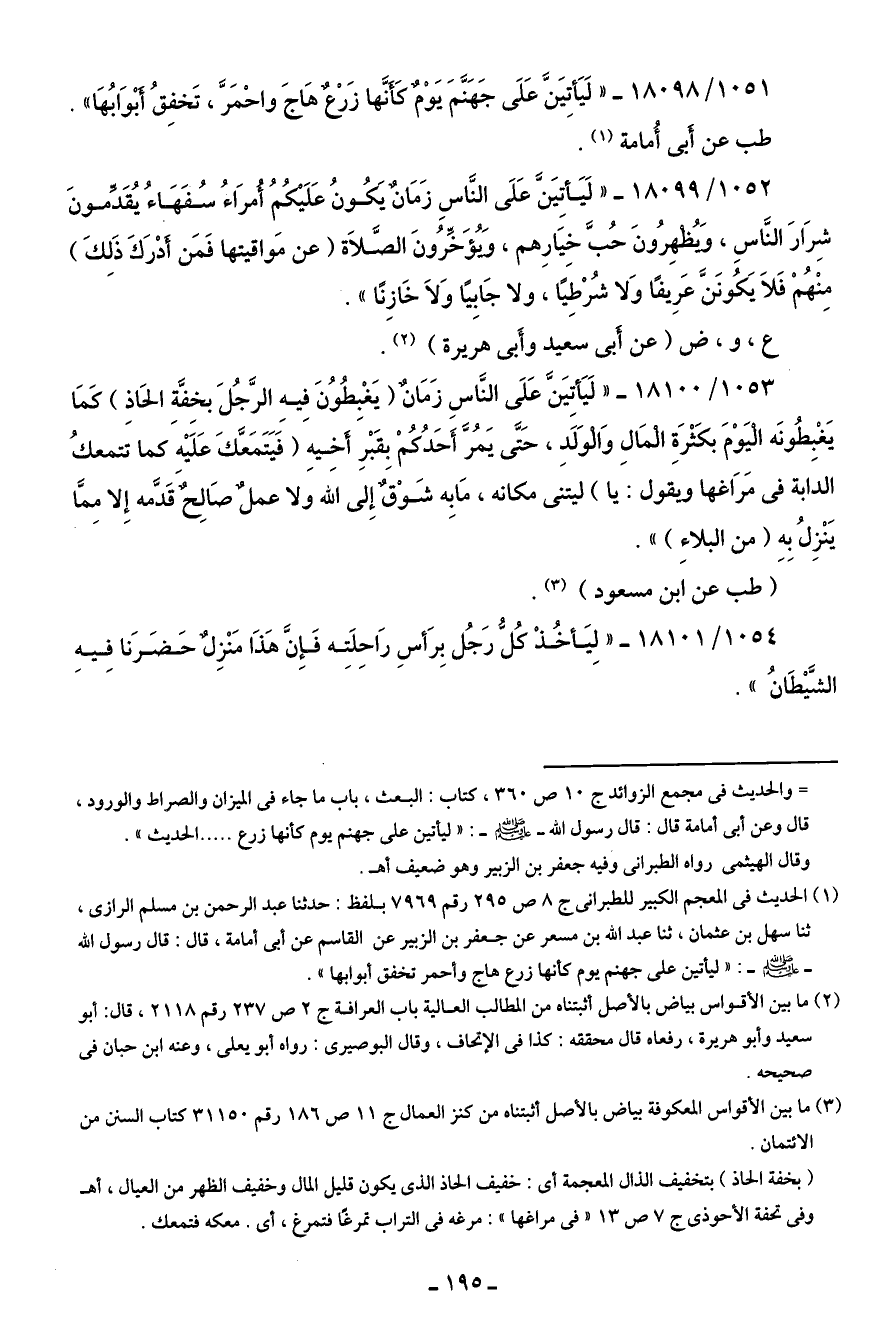 ١٠٥١/ ١٨٠٩٨ ـ « لَيَأتِيَنَّ عَلَى جَهَنَّم يَوْمٌ كَأَنَّها زَرْعٌ هَاجَ واحْمَرَّ ، تَخفِقُ أَبْوَابُهَا» .
طب عن أبى أُمامة (١) .
١٠٥٢/ ١٨٠٩٩ ـ « لَيَـأتِيَنَّ عَلَى النَّاسِ زَمَانٌ يَكُـونُ عَلَيْكُمُ أُمرَاءُ سُـفَهَـاءُ يُقَدِّمـونَ
شِرَارَ النَّاسِ ، ويُظْهِرُونَ حُبَّ خيَارِهم ، ويُؤَخِّرُونَ الصَّلاَة ( عن مَوَاقيتها فَمَن أَدْرَكَ ذَلِكَ )
مِنْهُمْ فَلاَ يَكُونَنَّ عَرِيفًا وَلاَ شُرْطيًا ، ولا جَابِيًا وَلاَ خَازِنًا » .
ع ، و ، ض ( عن أبى سعيد وأبى هريرة ) (٢) .
١٠٥٣/ ١٨١٠٠ ـ « لَيَأتيَنَّ عَلَى النَّاسِ زَمَانٌ ( يَغْبِطُونَ فيـه الرَّجُلَ بخفَّة الحَاذِ ) كَمَا
يَغْبِطُونَه الْيَوْمَ بكَثْرَةِ الْمَالِ وَالْوَلَدِ ، حَتَّى يَمُرَّ أَحَدُكُمْ بِقَبْرِ أَخـيِه ( فَيَتَمَعَّكَ عَلَيْهِ كما تتمعكُ
الدابة فى مَرَاغها ويقول : يا ) ليتنى مكانه ، مَابه شَـوْقٌ إلى الله ولا عملٌ صَالحٌ قَدَّمه إلا ممَّا
يَنْزِلُ بِهِ ( من البلاءِ ) » .
( طب عن ابن مسعود ) (٣) .
١٠٥٤/ ١٨١٠١ ـ « لِيَـأخُـذْ كُلُّ رَجُل بِرَأسِ رَاحلَتِـه فَـإِنَّ هَذَا مَنْزِلٌ حَـضَـرَنَا فِـيـهِ
الشَّيْطَانُ » .
= والحديث فى مجمع الزوائد ج ١٠ ص ٣٦٠ ، كتاب : البـعث ، باب ما جاء فى الميزان والصراط والورود ،
قال وعن أبى أمامة قال : قال رسول الله ـ ﷺ ـ : « ليأتين على جهنم يوم كأنها زرع .....الحديث » .
وقال الهيثمى رواه الطبرانى وفيه جعفر بن الزبير وهو ضعيف أهـ .
(١) الحديث فى المعجم الكبير للطبرانى ج ٨ ص ٢٩٥ رقم ٧٩٦٩ بـلفظ : حدثنا عبد الرحمن بن مسلم الرازى ،
ثنا سهل بن عثمان ، ثنا عبد الله بن مسعر عن جـعفر بن الزبير عن القاسم عن أبى أمامة ، قال : قال رسول الله
ـ ﷺ ـ : « ليأتين على جهنم يوم كأنها زرع هاج وأحمر تخفق أبوابها » .
(٢) ما بين الأقـواس بياض بالأصل أثبتناه من المطالب العـالية باب العرافـة ج ٢ ص ٢٣٧ رقم ٢١١٨ ، قال: أبو
سعيد وأبو هريرة ، رفعاه قال محققه : كذا فى الإتحاف ، وقال البوصيرى : رواه أبو يعلى ، وعنه ابن حبان فى
صحيحه .
(٣) ما بين الأقواس المعكوفة بياض بالأصل أثبتناه من كنز العمال ج ١١ ص ١٨٦ رقم ٣١١٥٠ كتاب السنن من
الائتمان .
( بخفة الحاذ ) بتخفيف الذال المعجمة أى : خفيف الحاذ الذى يكون قليل المال وخفيف الظهر من العيال ، أهـ
وفى تحفة الأحوذى ج ٧ ص ١٣ « فى مراغها » : مرغه فى التراب تمرغًا فتمرغ ، أى . معكه فتمعك .
ـ ١٩٥ ـ